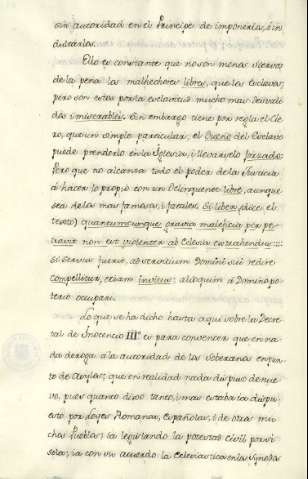 sin autoridad en el Principe de imponerla, ó in
dultarla.
Ello es constante que no son menos siervos
de la pena los malhechores libres, que los Esclavos;
pero son estos por la esclavitud mucho mas desvali
dos i miserables. Sin embargo tiene por regla el Cle
ro, que un simple particular, el Dueño del Esclavo
puede prenderlo en la Iglesia, i llevarselo forzado:
Pero que no alcanza todo el poder de la Justicia
á hacer lo propio con un Delinquente libre, aunque
sea de los mas famosos, i fatales. Si liber (dice el
texto) quantumcunque gravia maleficia per pe
traverit non est violenter ab Ecclesia extrahendus:
Si servus fuerit, ad servitium Domini sui redire
compellitur, etiam invitus: alioquin á Domino po
terit occupari.
Lo que se ha dicho hasta aqui sobre la Decre
tal de Inocencio III.º es para convencer que en na
da deroga a la autoridad de los Soberanos en pun
to de Asylos; que en realidad nada dispuso de nue
vo, pues quanto dixo tenia, i mas estaba ia dispu
esto por Leyes Romanas, Españolas, i de otros mu
chos Pueblos; ia legislando la potestad civil por si
sola, ia con un acuerdo la Eclesiastica en los Synodos